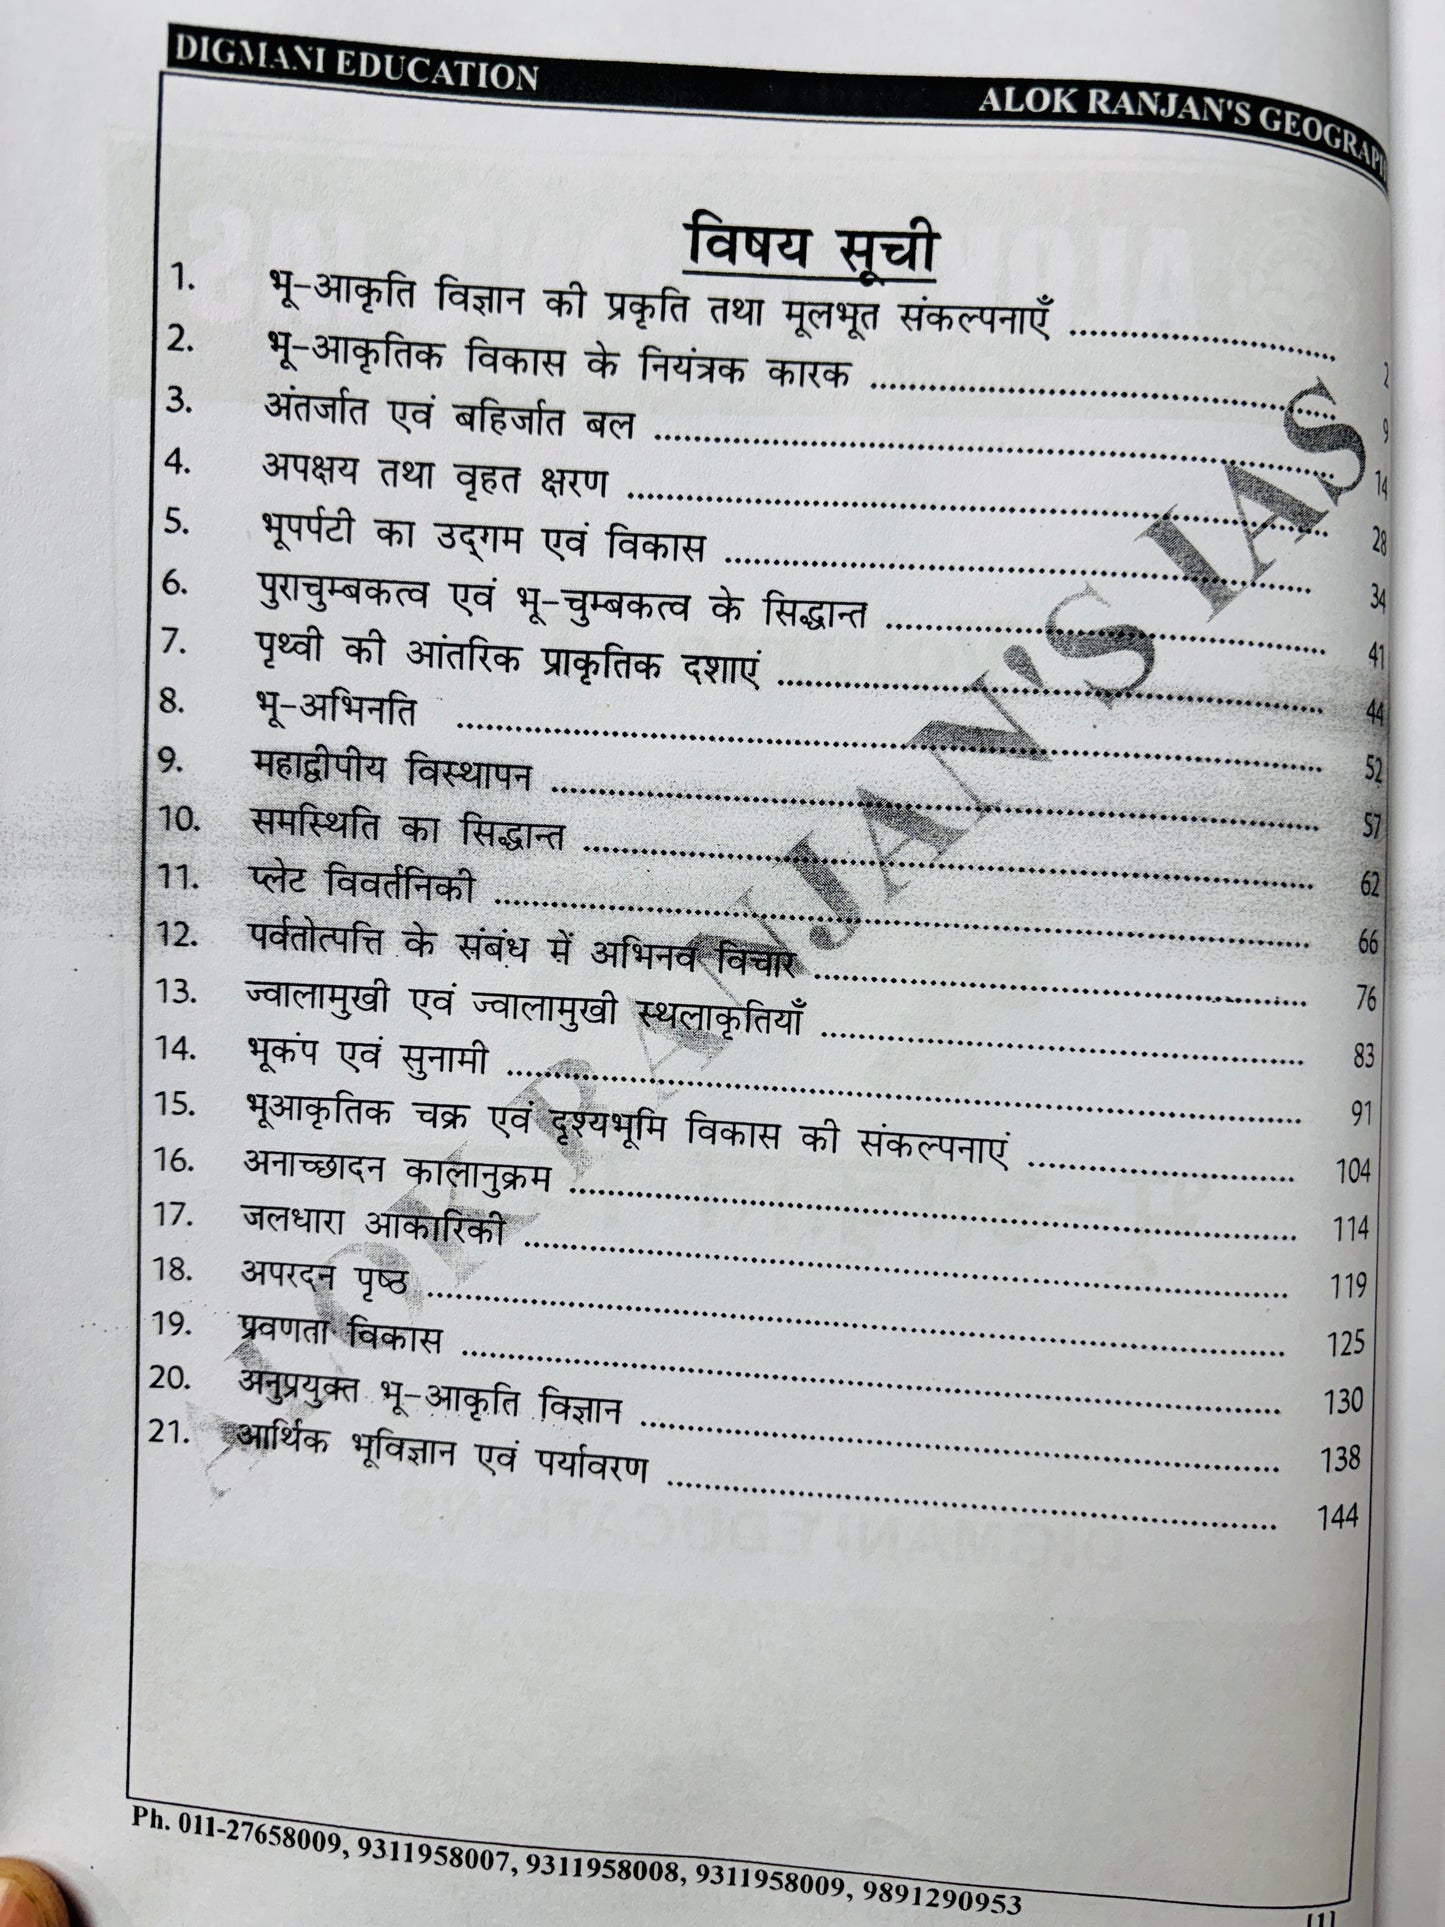 DIGMANI EDUCATION
ALOK RANJAN'S GEOGRAPH
विषय सूची
1. भू-आकृति विज्ञान की प्रकृति तथा मूलभूत संकल्पनाएँ ........................................ 2
2. भू-आकृतिक विकास के नियंत्रक कारक ........................................ 9
3. अंतर्जात एवं बहिर्जात बल ........................................ 14
4. अपक्षय तथा वृहत क्षरण ........................................ 28
5. भूपर्पटी का उद्गम एवं विकास ........................................ 34
6. पुराचुम्बकत्व एवं भू-चुम्बकत्व के सिद्धान्त ........................................ 41
7. पृथ्वी की आंतरिक प्राकृतिक दशाएं ........................................ 44
8. भू-अभिनति ........................................ 52
9. महाद्वीपीय विस्थापन ........................................ 57
10. समस्थिति का सिद्धान्त ........................................ 62
11. प्लेट विवर्तनिकी ........................................ 66
12. पर्वतोत्पत्ति के संबंध में अभिनव विचार ........................................ 76
13. ज्वालामुखी एवं ज्वालामुखी स्थलाकृतियाँ ........................................ 83
14. भूकंप एवं सुनामी ........................................ 91
15. भूआकृतिक चक्र एवं दृश्यभूमि विकास की संकल्पनाएं ........................................ 104
16. अनाच्छादन कालानुक्रम ........................................ 114
17. जलधारा आकारिकी ........................................ 119
18. अपरदन पृष्ठ ........................................ 125
19. प्रवणता विकास ........................................ 130
20. अनुप्रयुक्त भू-आकृति विज्ञान ........................................ 138
21. आर्थिक भूविज्ञान एवं पर्यावरण ........................................ 144
ALOK RANJAN'S IAS
Ph. 011-27658009, 9311958007, 9311958008, 9311958009, 9891290953
[1]